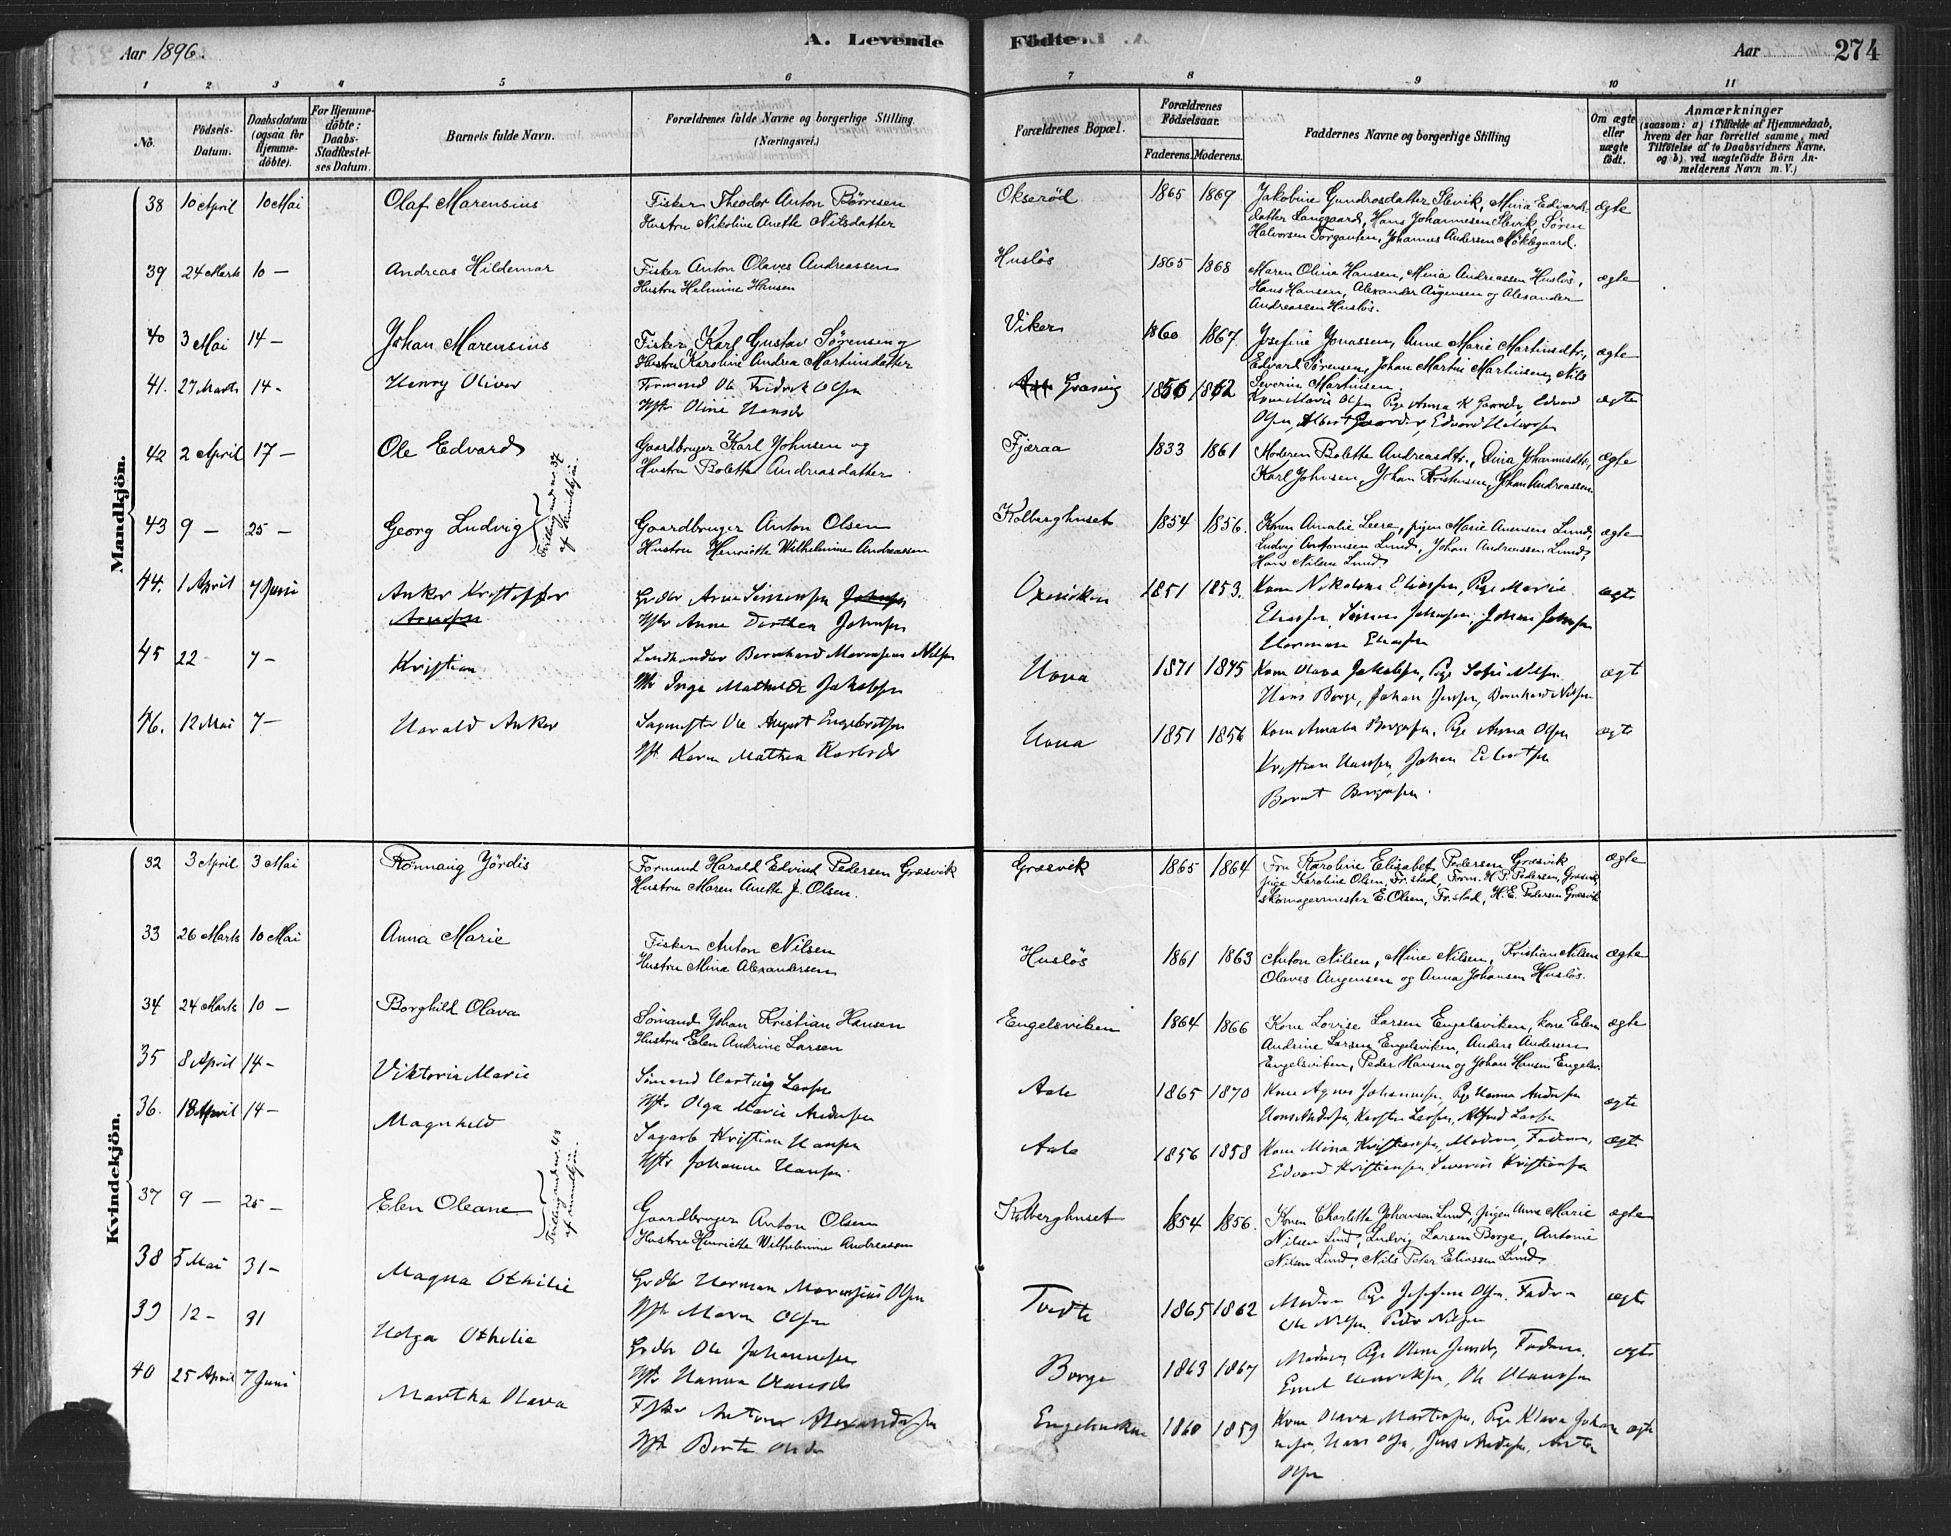 Aar 1896.
A. Levende
Födte.
Aar
274
1 2 3 4 5 6 7 8 9 10 11
No.
Födsels-
Datum.
Daabsdatum
(ogsaa for
Hjemme-
döbte).
For Hjemme-
döbte:
Daabs-
Stadfæstel-
ses Datum.
Barnets fulde Navn.
Forældrenes fulde Navne og borgerlige Stilling
(Næringsvei.)
Forældrenes Bopæl.
Forældrenes
Födselsaar.
Faderens. Moderens.
Faddernes Navne og borgerlige Stilling
Om ægte
eller
uægte
födt.
Anmærkninger
(saasom: a) i Tilfælde af Hjemmedaab,
hvem der har forrettet samme, med
Tilföielse af to Daabsvidners Navne,
og b) ved uægtefödte Börn An-
melderens Navn m. V.)
Mandkjön.
38 10 April 10 Mai Olaf Marensius Fisker Theodor Anton Børresen
Hustru Nikoline Anette Nilsdatter
Okserød 1865 1869 Jakobine Gundrosdatter Slevik, Mina Edvards-
datter Langgaard, Hans Johannesen Slevik, Søren
Halvorsen Torgauten, Johannes Andersen Møklegaard.
ægte
39 24 Marts 10 — Andreas Hildemar Fisker Anton Olaves Andreassen
Hustru Helmine Hansen
Husløs 1865 1868 Maren Olina Hansen, Mina Andreassen Husløs,
Hans Hansen, Alexander Argensen og Alexander
Andreassen Husløs.
ægte
40 3 Mai 14 — Johan Marensius Fisker Karl Gustav Sørensen og
Hustru Karoline Andrea Martinsdatter
Viker 1860 1867 Josefine Jonassen, Anne Marie Martinsdtr,
Edvard Sørensen, Johan Martin Martinsen, Nils
Severin Martinsen.
ægte
41. 27 Marts 14 - Henry Oliver Formand Ole Fredrik Olsen
Hstr Oline Hansdr
Græsvig 1856 1862 Kone Marie Olsen Pige Anna K Gaarder, Edvard
Olsen, Albert Gaarder, Edvard Halvorsen
ægte
42 2 April 17 — Ole Edvard Gaardbruger Karl Johnsen og
Hustru Bolette Andreasdatter
Fjæraa 1833 1861 Moderen Bolette Andreasdtr., Lina Johannesdtr,
Karl Johnsen, Johan Kristensen, Johan Andreassen
ægte
43 9 — 25 — Georg Ludvig Tvilling med no. 37
af Kvindekjøn.
Gaardbruger Anton Olsen
Hustru Henriette Wilhelmine Andreassen
Kolberghuset 1854 1856. Konen Amalie Leere, pigen Marie Lund,
Ludvig Antonisen Lund, Johan Andreassen Lund,
Hans Nilsen Lund
ægte
44. 1 April 7 Juni Anker Kristoffer
Arnesen
Grdbr Arne Simensen Johnsen
Hstr Anne Dorthea Johnsen
1851 1853. Kone Nikoline Eliassen, Pige Marie
Eliassen, Simen Johnsen, Johan Johnsen
Herman Eliassen
ægte
45 22 7 — Kristian Landhandler Bernhard Marensius Nilsen
Hstr Inga Mathilde Jakobsen
Hova 1871 1875 Kone Olava Jakobsen, Pige Sofie Nilsen
Hans Borge, Johan Jensen, Bernhard Nilsen
ægt
46. 12 Mai 7 — Harald Anker Sagmester Ole August Engebretsen
Hstr Karen Mathea Karlsdr
Hova 1851 1856 Kone Amalia Borgersen, Pige Anna Olsen
Kristian Hansen, Johan Edvartsen
Bernt Borgersen.
ægte
Kvindekjön.
32 3 April 3 Mai Rønnaug Jördis Formand Harald Edvind Pedersen Græsvik
Hustru Maren Anette J. Olsen.
Græsvik 1865 1864 Fru Karoline Elisabet Pedersen Græsvik
pige Karoline Olsen, Fr.stad, Form. H. P. Pedersen, Græsvik
skomagermester E. Olsen, Fr.stad, H. E. Pedersen Græsvik
ægte
33 26 Marts 10 Mai Anna Marie Fisker Anton Nilsen
Hustru Mina Alexandersen
Husløs 1861 1863 Anton Nilsen, Mine Nilsen, Kristian Nilsen
Olaves Argensen og Anna Johansen Husløs.
ægte
34 24 Marts 10 — Borghild Olava Sømand Johan Kristian Hansen
Hustru Elen Andrine Larsen
Engelsviken 1864 1866 Kone Lovise Larsen Engelsviken, kone Elen
Andrine Larsen Engelsviken, Anders Andersen
Engelsviken, Peder Hansen og Johan Hansen Engelsv.
ægte
35 8 April 14 — Viktoria Marie Sømand Hartvig Larsen
Hstr Olga Marie Andersen
Aale 1865 1870 Kone Agnes Johannesen, Pige Hanna Andersen
Hans Andersen, Karsten Larsen, Alfred Larsen
ægte
36. 18 April 14 — Magnhild Sagarb Kristian Hansen
Hstr Johanne Hansen.
Aale 1856 1858 Kone Mina Kristiansen, Moderen, Faderen,
Edvard Kristiansen, Severin Kristiansen
ægte
37 9 — 25 — Elen Oleane Tvilling med no. 43
af mandkjøn.
Gaardbruger Anton Olsen
Hustru Henriette Wilhelmine Andreassen
Kolberghuset 1854 1856. Konen Charlotte Johansen Lund, pigen Anne Marie
Nilsen Lund, Ludvig Larsen Borge, Antoni
Nilsen Lund, Nils Peter Eliassen Lund
ægte
38 5 Mai 31 — Magna Othilie Grdbr Herman Marensius Olsen
Hstr Maren Olsen
Tvedte 1865 1862 Moderen Pige Josefine Olsen, Faderen
Ole Nilsen, Peder Nilsen
ægte
39 12 — 31 Helga Othilie Grdbr Ole Johannesen
Hstr Hanna Hansdr
Borge 1863 1867 Moderen, Pige Oline Jensdr, Faderen,
Emil Henriksen, Ole Olaussen
ægte
40 25 April 7 Juni Martha Olava Fisker Anton Alexandersen
Hstr Berte
Engelsviken 1860 1859 Kone Olava Martinsen, Pige Klara Johan
nesen, Hans Olsen, Jens Andersen, Anton
Olsen
ægte